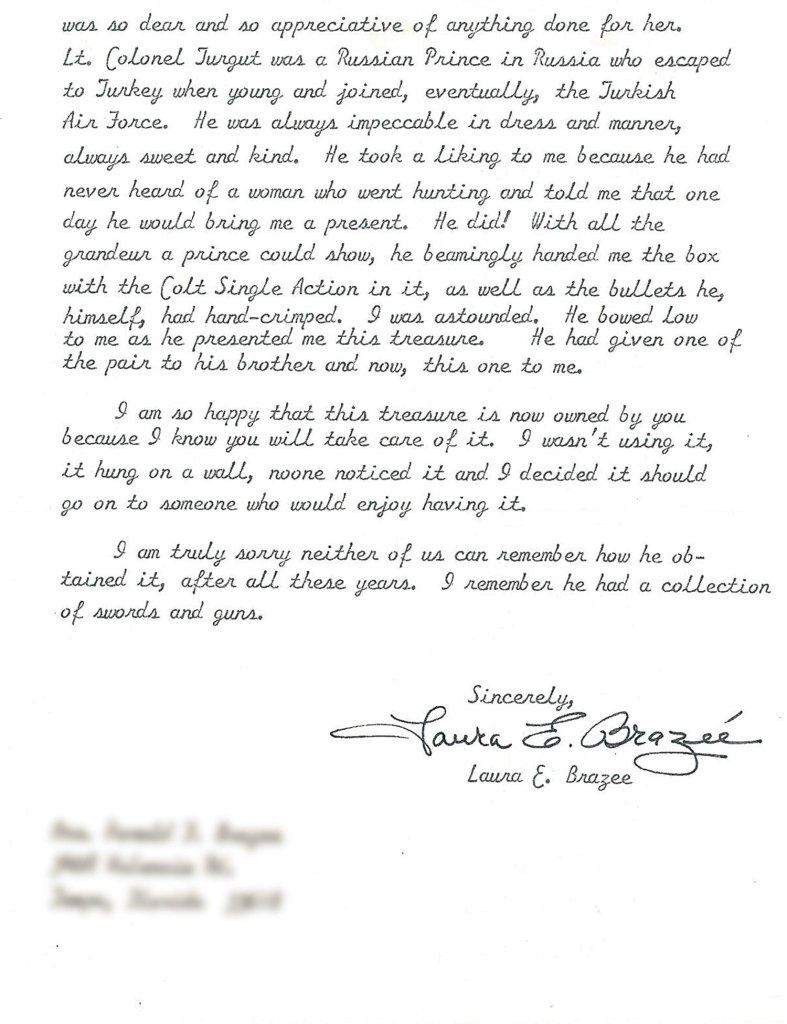 was so dear and so appreciative of anything done for her.
Lt. Colonel Turgut was a Russian Prince in Russia who escaped
to Turkey when young and joined, eventually, the Turkish
Air Force. He was always impeccable in dress and manner,
always sweet and kind. He took a liking to me because he had
never heard of a woman who went hunting and told me that one
day he would bring me a present. He did! With all the
grandeur a prince could show, he beamingly handed me the box
with the Colt Single Action in it, as well as the bullets he,
himself, had hand-crimped. I was astounded. He bowed low
to me as he presented me this treasure. He had given one of
the pair to his brother and now, this one to me.
I am so happy that this treasure is now owned by you
because I know you will take care of it. I wasn't using it,
it hung on a wall, noone noticed it and I decided it should
go on to someone who would enjoy having it.
I am truly sorry neither of us can remember how he ob-
tained it, after all these years. I remember he had a collection
of swords and guns.
Sincerely,
Laura E. Brazeé
Laura E. Brazee